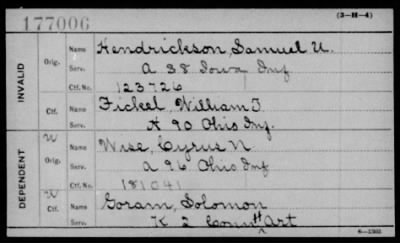 177006 (3-H-4)
INVALID
Orig. Name Hendrickson, Samuel U.
Serv. A 38 Iowa Inf
Ctf. No. 123726
Ctf. Name Fickel, William T.
Serv. A 90 Ohio Inf.
DEPENDENT
W Orig. Name Wise, Cyrus N
Serv. A 96 Ohio Inf
Ctf. No. 181041
W Ctf. Name Goram, Solomon
Serv. K 2 Conn H Art
6-1303